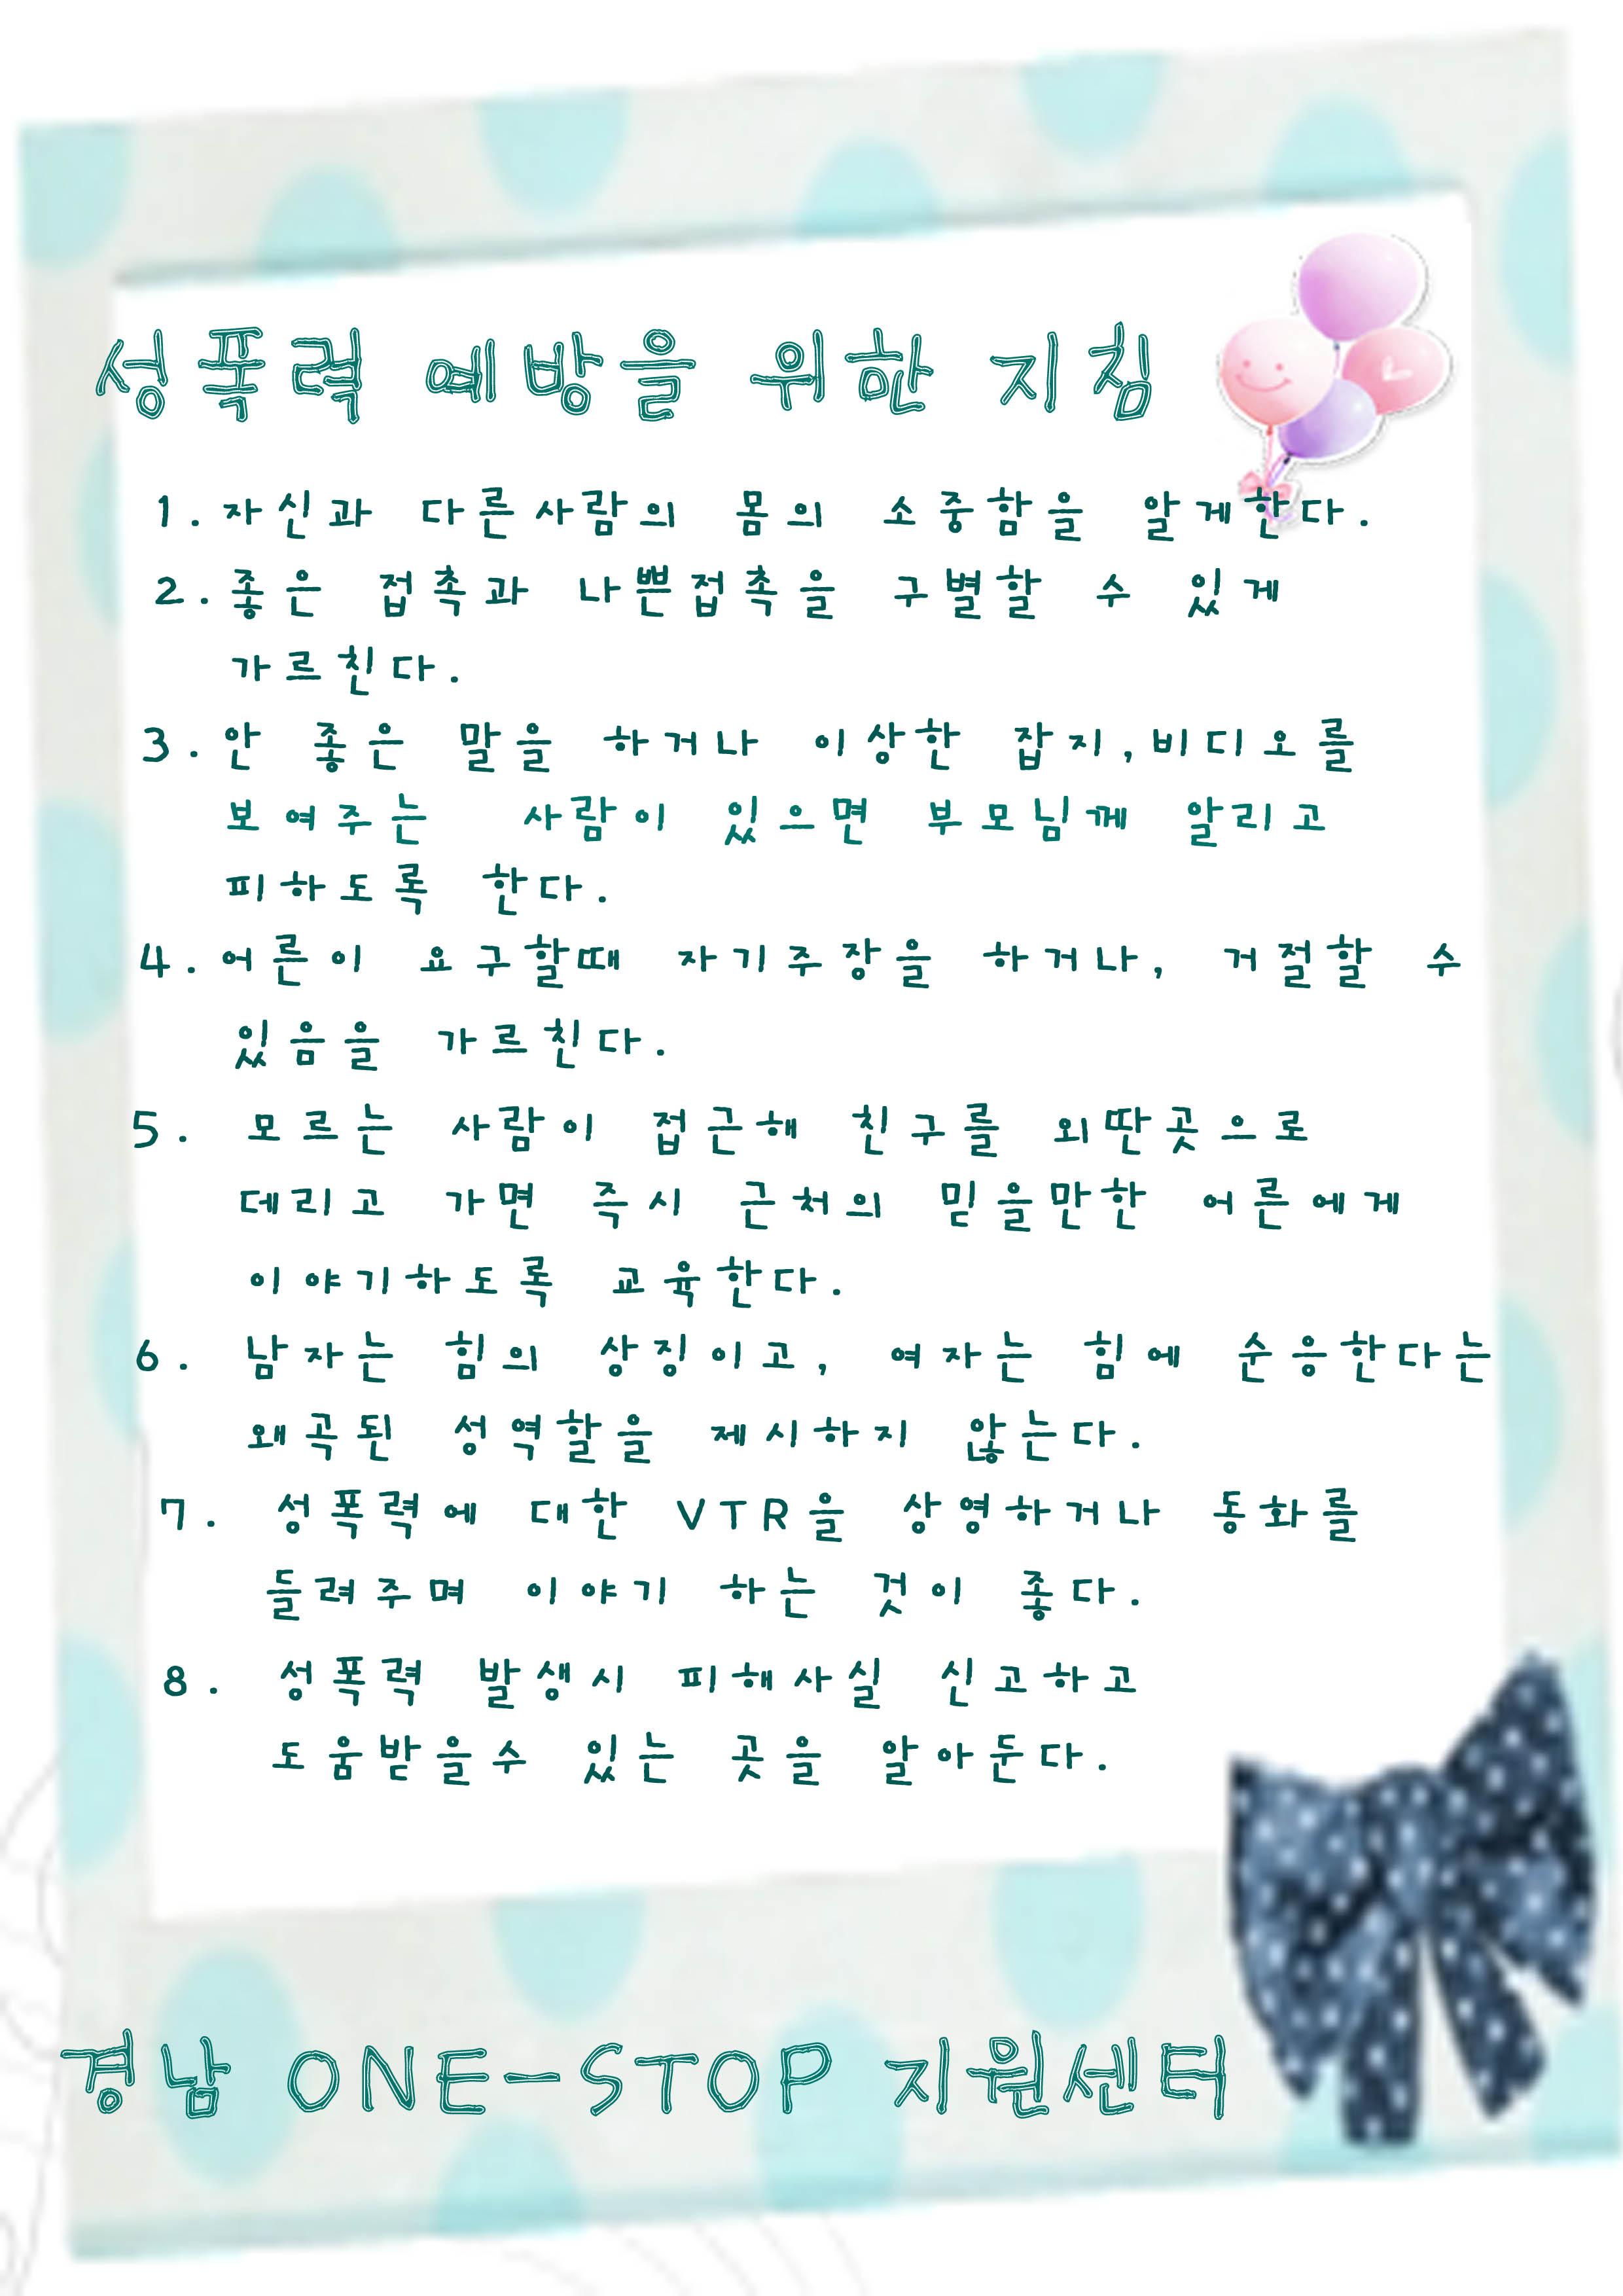 성폭력 예방을 위한 지침
1. 자신과 다른사람의 몸의 소중함을 알게한다.
2. 좋은 접촉과 나쁜접촉을 구별할 수 있게
가르친다.
3. 안 좋은 말을 하거나 이상한 잡지,비디오를
보여주는 사람이 있으면 부모님께 알리고
피하도록 한다.
4. 어른이 요구할때 자기주장을 하거나, 거절할 수
있음을 가르친다.
5. 모르는 사람이 접근해 친구를 외딴곳으로
데리고 가면 즉시 근처의 믿을만한 어른에게
이야기하도록 교육한다.
6. 남자는 힘의 상징이고, 여자는 힘에 순응한다는
왜곡된 성역할을 제시하지 않는다.
7. 성폭력에 대한 VTR을 상영하거나 동화를
들려주며 이야기 하는 것이 좋다.
8. 성폭력 발생시 피해사실 신고하고
도움받을수 있는 곳을 알아둔다.
경남 ONE-STOP 지원센터